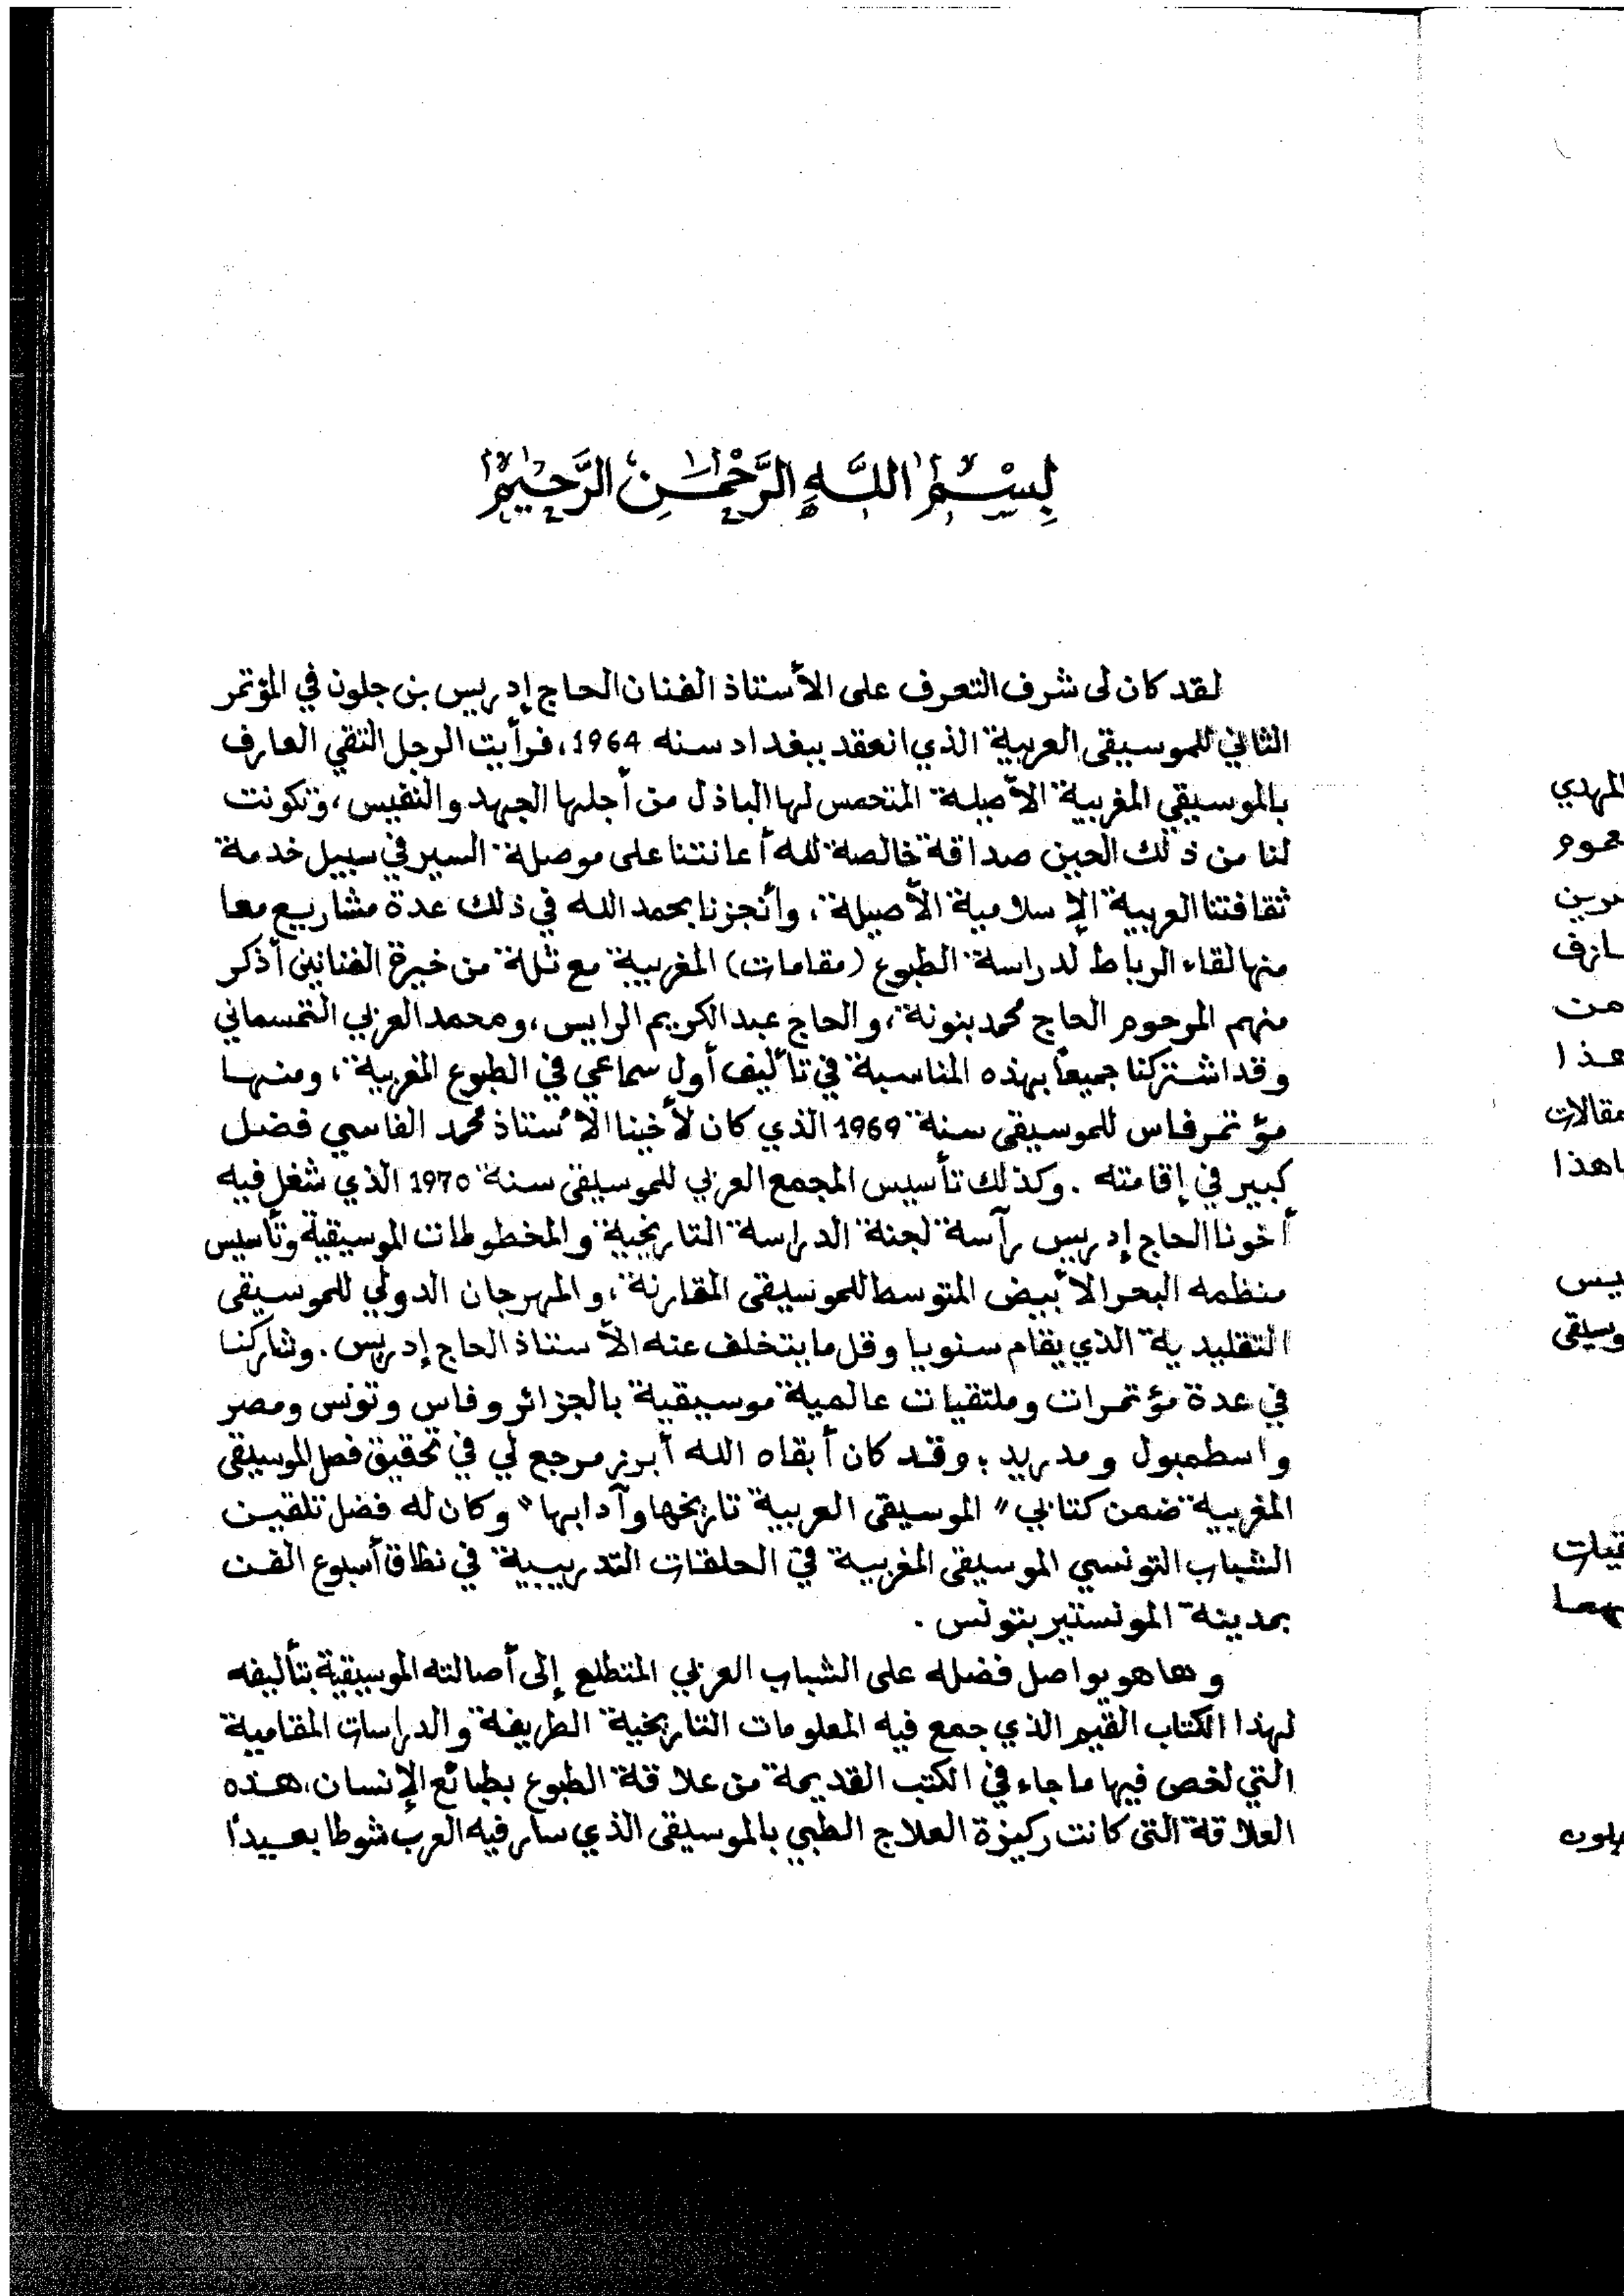 بِسْمِ اللَّهِ الرَّحْمَٰنِ الرَّحِيمِ
لقد كان لى شرف التعرف على الأستاذ الفنان الحاج إدريس بن جلون في المؤتمر
الثاني للموسيقى العربية الذي انعقد ببغداد سنه 1964، فرأيت الرجل التقي العارف
بالموسيقي المغربية الأصيلة المتحمس لها الباذل من أجلها الجهد والنفيس، وتكونت
لنا من ذلك الحين صداقة خالصة لله أعانتنا على موصلة السير في سبيل خدمة
ثقافتنا العربية الإسلامية الأصيلة، وأنجزنا بحمد الله في ذلك عدة مشاريع معا
منها لقاء الرباط لدراسة الطبوع (مقامات) المغربية مع ثلة من خيرة الفنانين أذكر
منهم المرحوم الحاج محمد بنونة، والحاج عبد الكريم الرايس، ومحمد العربي التمسماني
وقد اشتركنا جميعاً بهذه المناسبة في تأليف أول سماعي في الطبوع المغربية، ومنها
مؤتمر فاس للموسيقى سنة 1969 الذي كان لأخينا الأستاذ محمد الفاسي فضل
كبير في إقامته . وكذلك تأسيس المجمع العربي للموسيقى سنة 1970 الذي شغل فيه
أخونا الحاج إدريس رآسة لجنة الدراسة التاريخية والمخطوطات الموسيقية وتأسيس
منظمه البحر الأبيض المتوسط للموسيقى المقارنة، والمهرجان الدولي للموسيقى
التقليدية الذي يقام سنويا وقل ما يتخلف عنه الأستاذ الحاج إدريس . وشاركنا
في عدة مؤتمرات وملتقيات عالمية موسيقية بالجزائر وفاس وتونس ومصر
واسطمبول ومدريد ؛ وقد كان أبقاه الله أبرز مرجع لي في تحقيق فصل الموسيقى
المغربية ضمن كتابي " الموسيقى العربية تاريخها وآدابها " وكان له فضل تلقين
الشباب التونسي الموسيقى المغربية في الحلقات التدريبية في نطاق أسبوع الفن
بمدينة المونستير بتونس .
وها هو يواصل فضله على الشباب العربي المتطلع إلى أصالته الموسيقية بتأليفه
لهذا الكتاب القيم الذي جمع فيه المعلومات التاريخية الطريفة والدراسات المقامية
التي لخص فيها ما جاء في الكتب القديمة من علاقة الطبوع بطبائع الإنسان، هذه
العلاقة التى كانت ركيزة العلاج الطبي بالموسيقى الذي سار فيه العرب شوطا بعيدًا
المهدي
من
هذا
مقالات